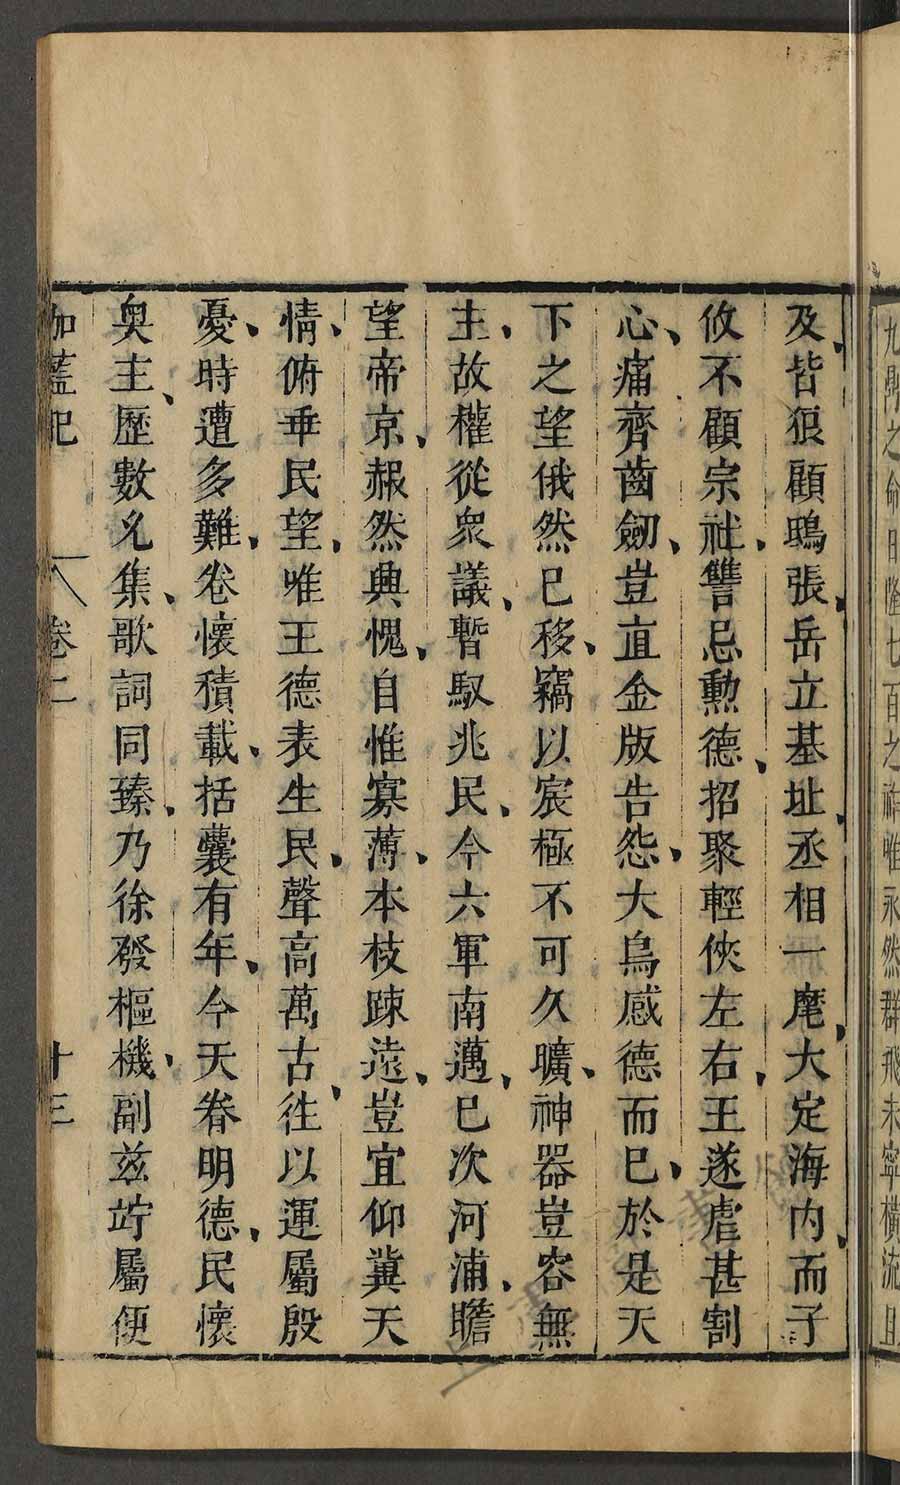 九鼎之命日隆七百之祚唯永然群飛未寧橫流且
及皆狼顧鴟張岳立基址丞相一麾大定海內而子
攸不顧宗社讐忌勲德招聚輕俠左右王遂虐甚割
心痛齊齒劒豈直金版告怨大鳥感德而已於是天
下之望俄然已移竊以宸極不可久曠神器豈容無
主故權從衆議暫馭兆民今六軍南邁已次河浦瞻
望帝京赧然興愧自惟寡薄本枝踈遠豈宜仰冀天
情俯垂民望唯王德表生民聲高萬古徃以運屬殷
憂時遭多難卷懷積載括囊有年今天眷明德民懷
奥主歷數允集歌詞同臻乃徐發樞機副兹竚屬便
伽藍記 卷二 十三